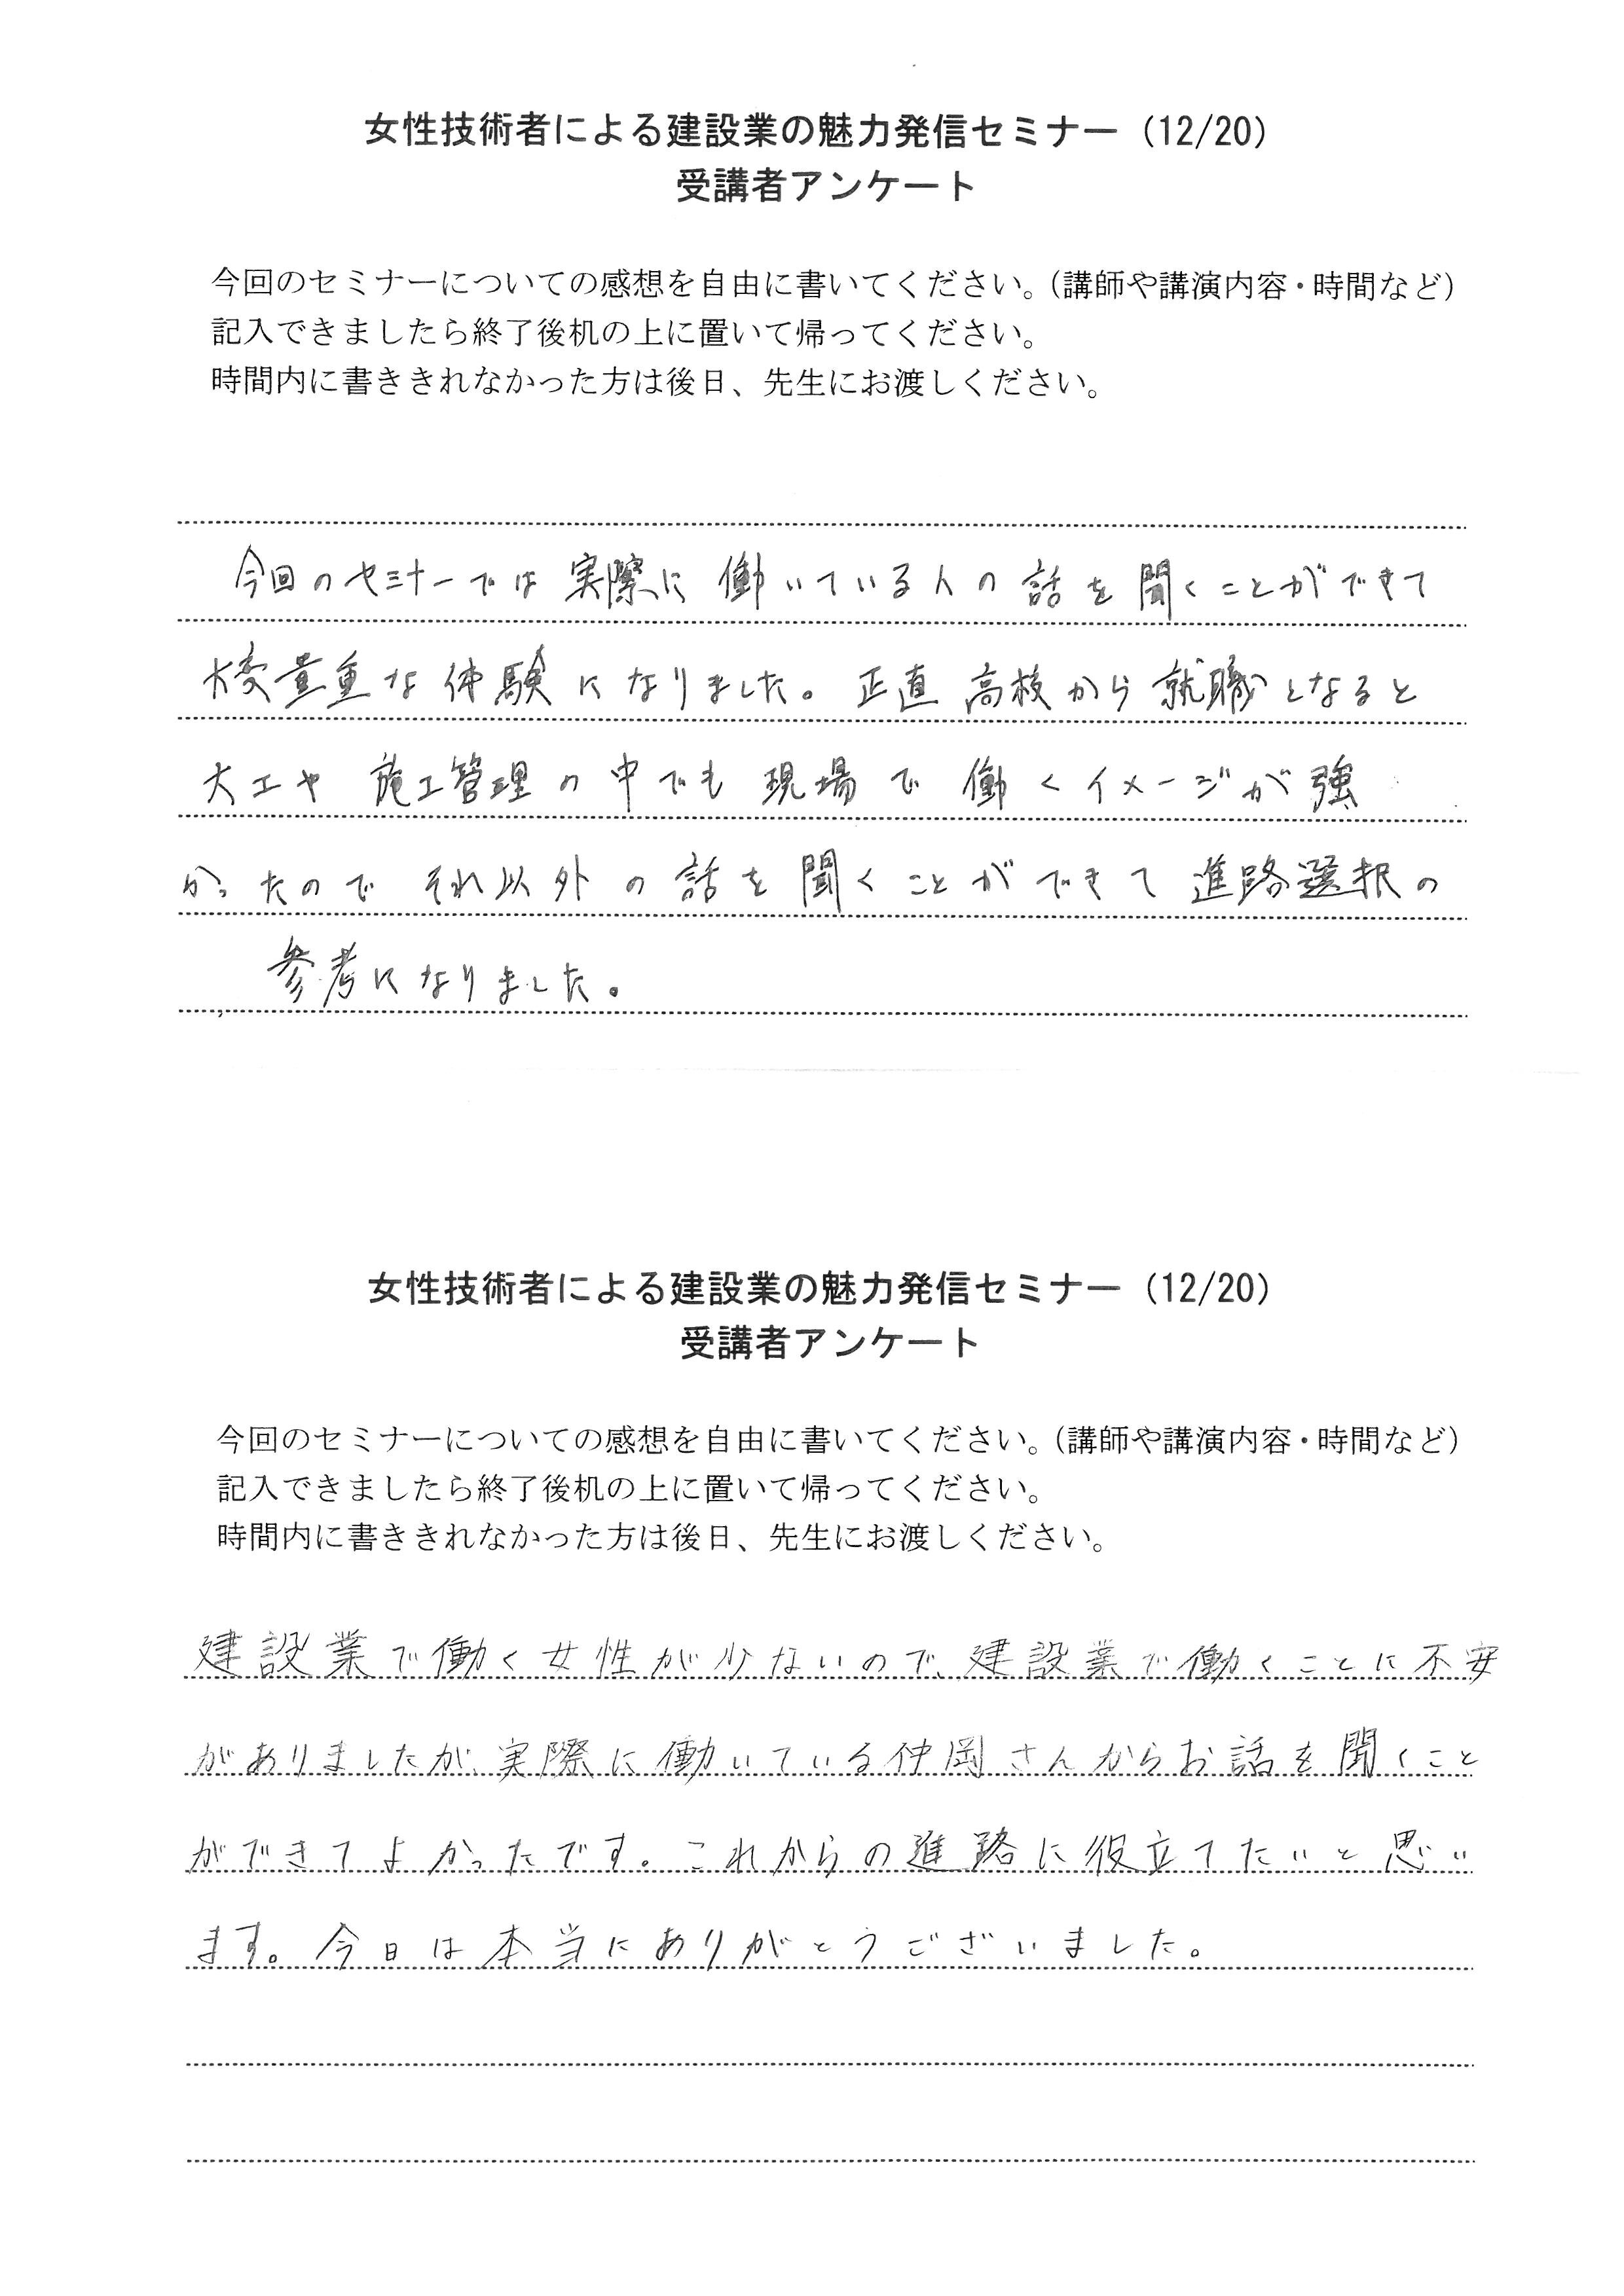 女性技術者による建設業の魅力発信セミナー（12/20）
受講者アンケート
今回のセミナーについての感想を自由に書いてください。（講師や講演内容・時間など）
記入できましたら終了後机の上に置いて帰ってください。
時間内に書ききれなかった方は後日、先生にお渡しください。
今回のセミナーでは実際に働いている人の話を聞くことができて
大変貴重な体験になりました。正直高校から就職となると
大工や施工管理の中でも現場で働くイメージが強
かったのでそれ以外の話を聞くことができて進路選択の
参考になりました。
女性技術者による建設業の魅力発信セミナー（12/20）
受講者アンケート
今回のセミナーについての感想を自由に書いてください。（講師や講演内容・時間など）
記入できましたら終了後机の上に置いて帰ってください。
時間内に書ききれなかった方は後日、先生にお渡しください。
建設業で働く女性が少ないので、建設業で働くことに不安
がありましたが、実際に働いている仲岡さんからお話を聞くこと
ができてよかったです。これからの進路に役立てたいと思い
ます。今日は本当にありがとうございました。